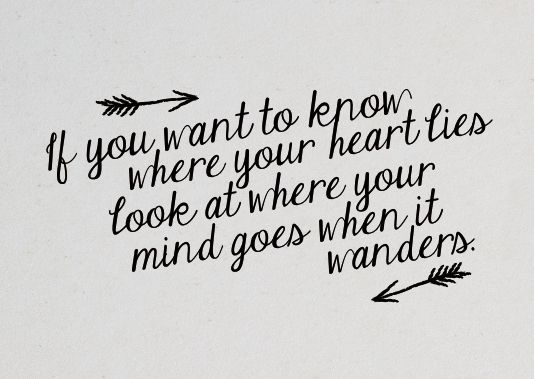 If you want to know
where your heart lies
look at where your
mind goes when it
wanders.